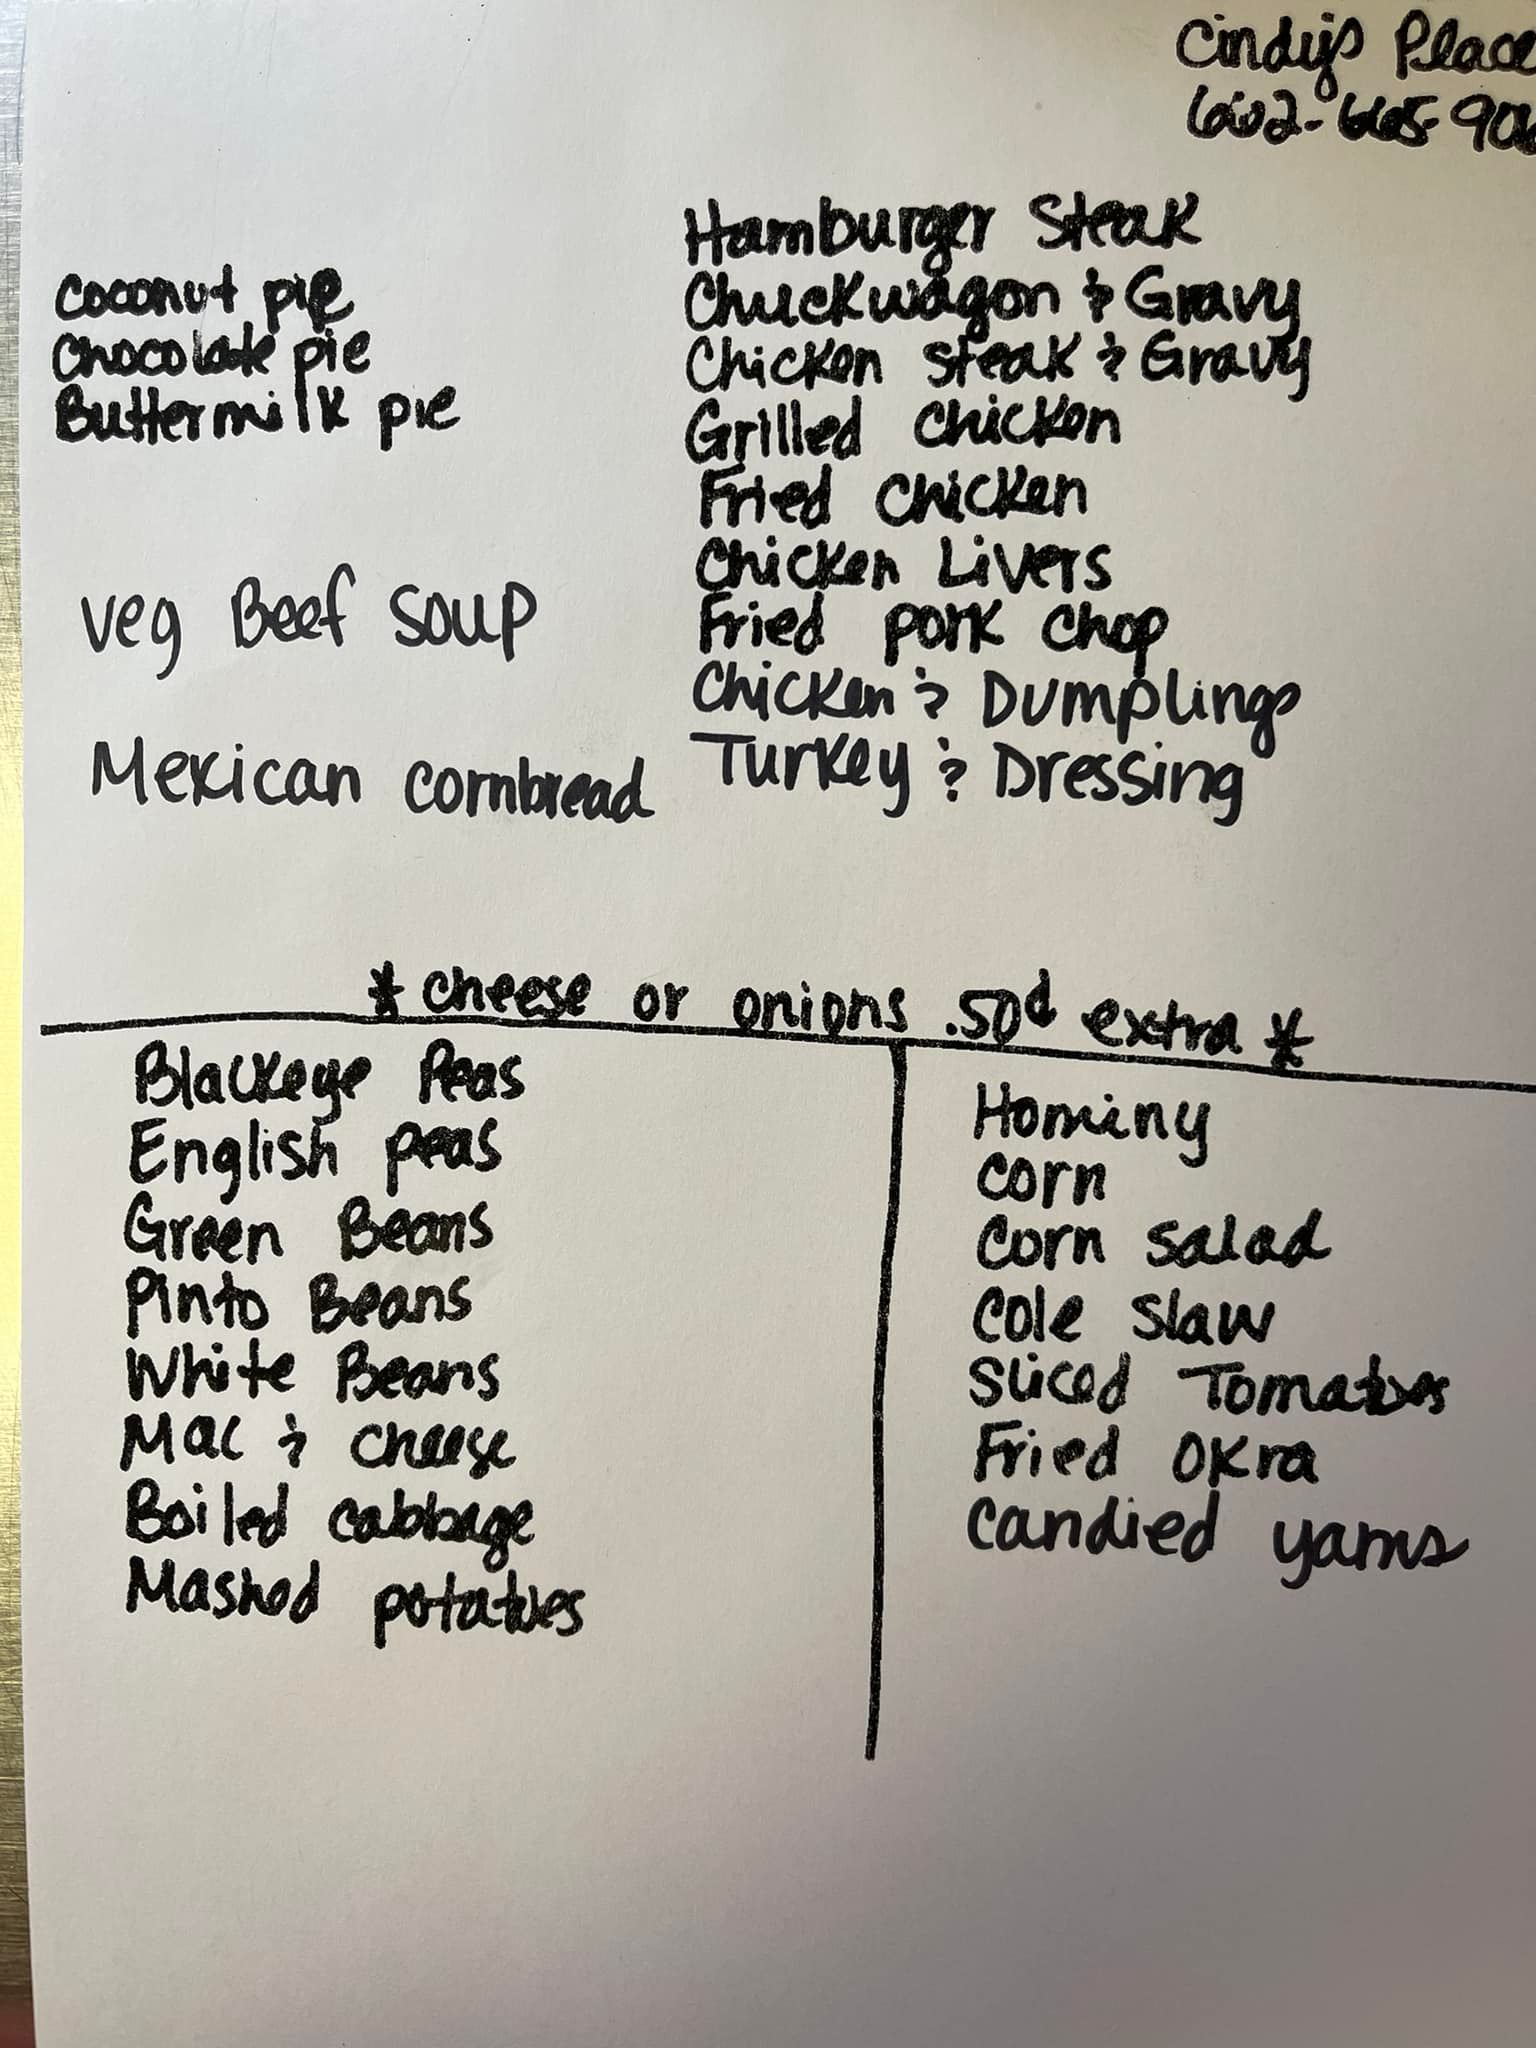 Cindy's Place
662-665-906
Coconut pie
Chocolate pie
Buttermilk pie
Veg Beef Soup
Mexican cornbread
Hamburger Steak
Chuckwagon & Gravy
Chicken Steak & Gravy
Grilled Chicken
Fried Chicken
Chicken Livers
Fried pork chop
Chicken & Dumplings
Turkey & Dressing
* cheese or onions .50¢ extra *
Blackeye Peas
English peas
Green Beans
Pinto Beans
White Beans
Mac & cheese
Boiled cabbage
Mashed potatoes
Hominy
Corn
Corn salad
Cole slaw
Sliced Tomatoes
Fried okra
Candied yams